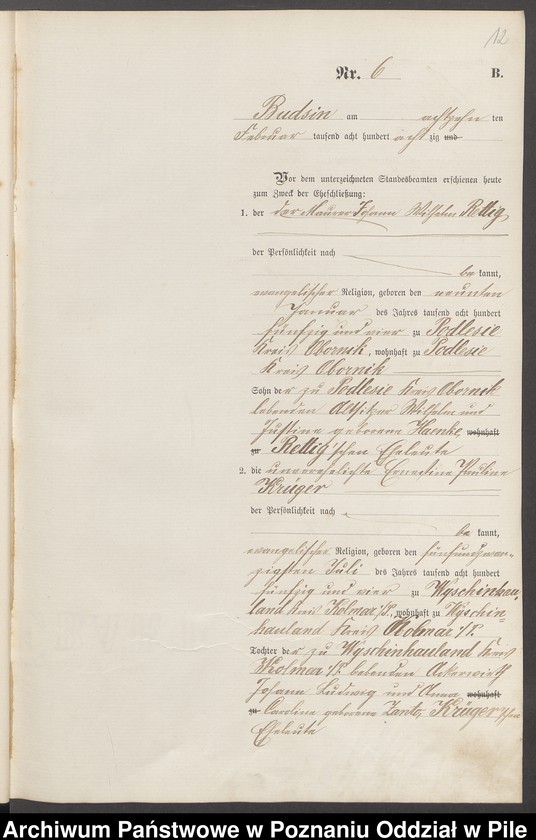 12
Nr. 6 B.
Budsin am achtzehn ten
Februar tausend acht hundert achtzig und
Vor dem unterzeichneten Standesbeamten erschienen heute
zum Zweck der Eheschließung:
1. der der Maurer Johann Wilhelm Rettig,
der Persönlichkeit nach
be kannt,
evangelischer Religion, geboren den neunten
Januar des Jahres tausend acht hundert
fünfzig und vier zu Podlesie
Kreis Obornik, wohnhaft zu Podlesie
Kreis Obornik
Sohn der zu Podlesie Kreis Obornik
lebenden Altsitzer Wilhelm und
Justine geborene Haenke wohnhaft
zu Rettig'schen Eheleute
2. die unverehelichte Ernestine Pauline
Krüger
der Persönlichkeit nach
be kannt,
evangelischer Religion, geboren den fünfundzwan-
zigsten Juli des Jahres tausend acht hundert
fünfzig und vier zu Wyschinhau
land Kreis Kolmar i/P., wohnhaft zu Wyschin-
hauland Kreis Kolmar i/P.
Tochter der zu Wyschinhauland Kreis
Kolmar i/P. lebenden Ackerwirth
Johann Ludwig und Anna wohnhaft
zu Caroline geborene Zanto, Krüger'schen
Eheleute
Archiwum Państwowe w Poznaniu Oddział w Pile